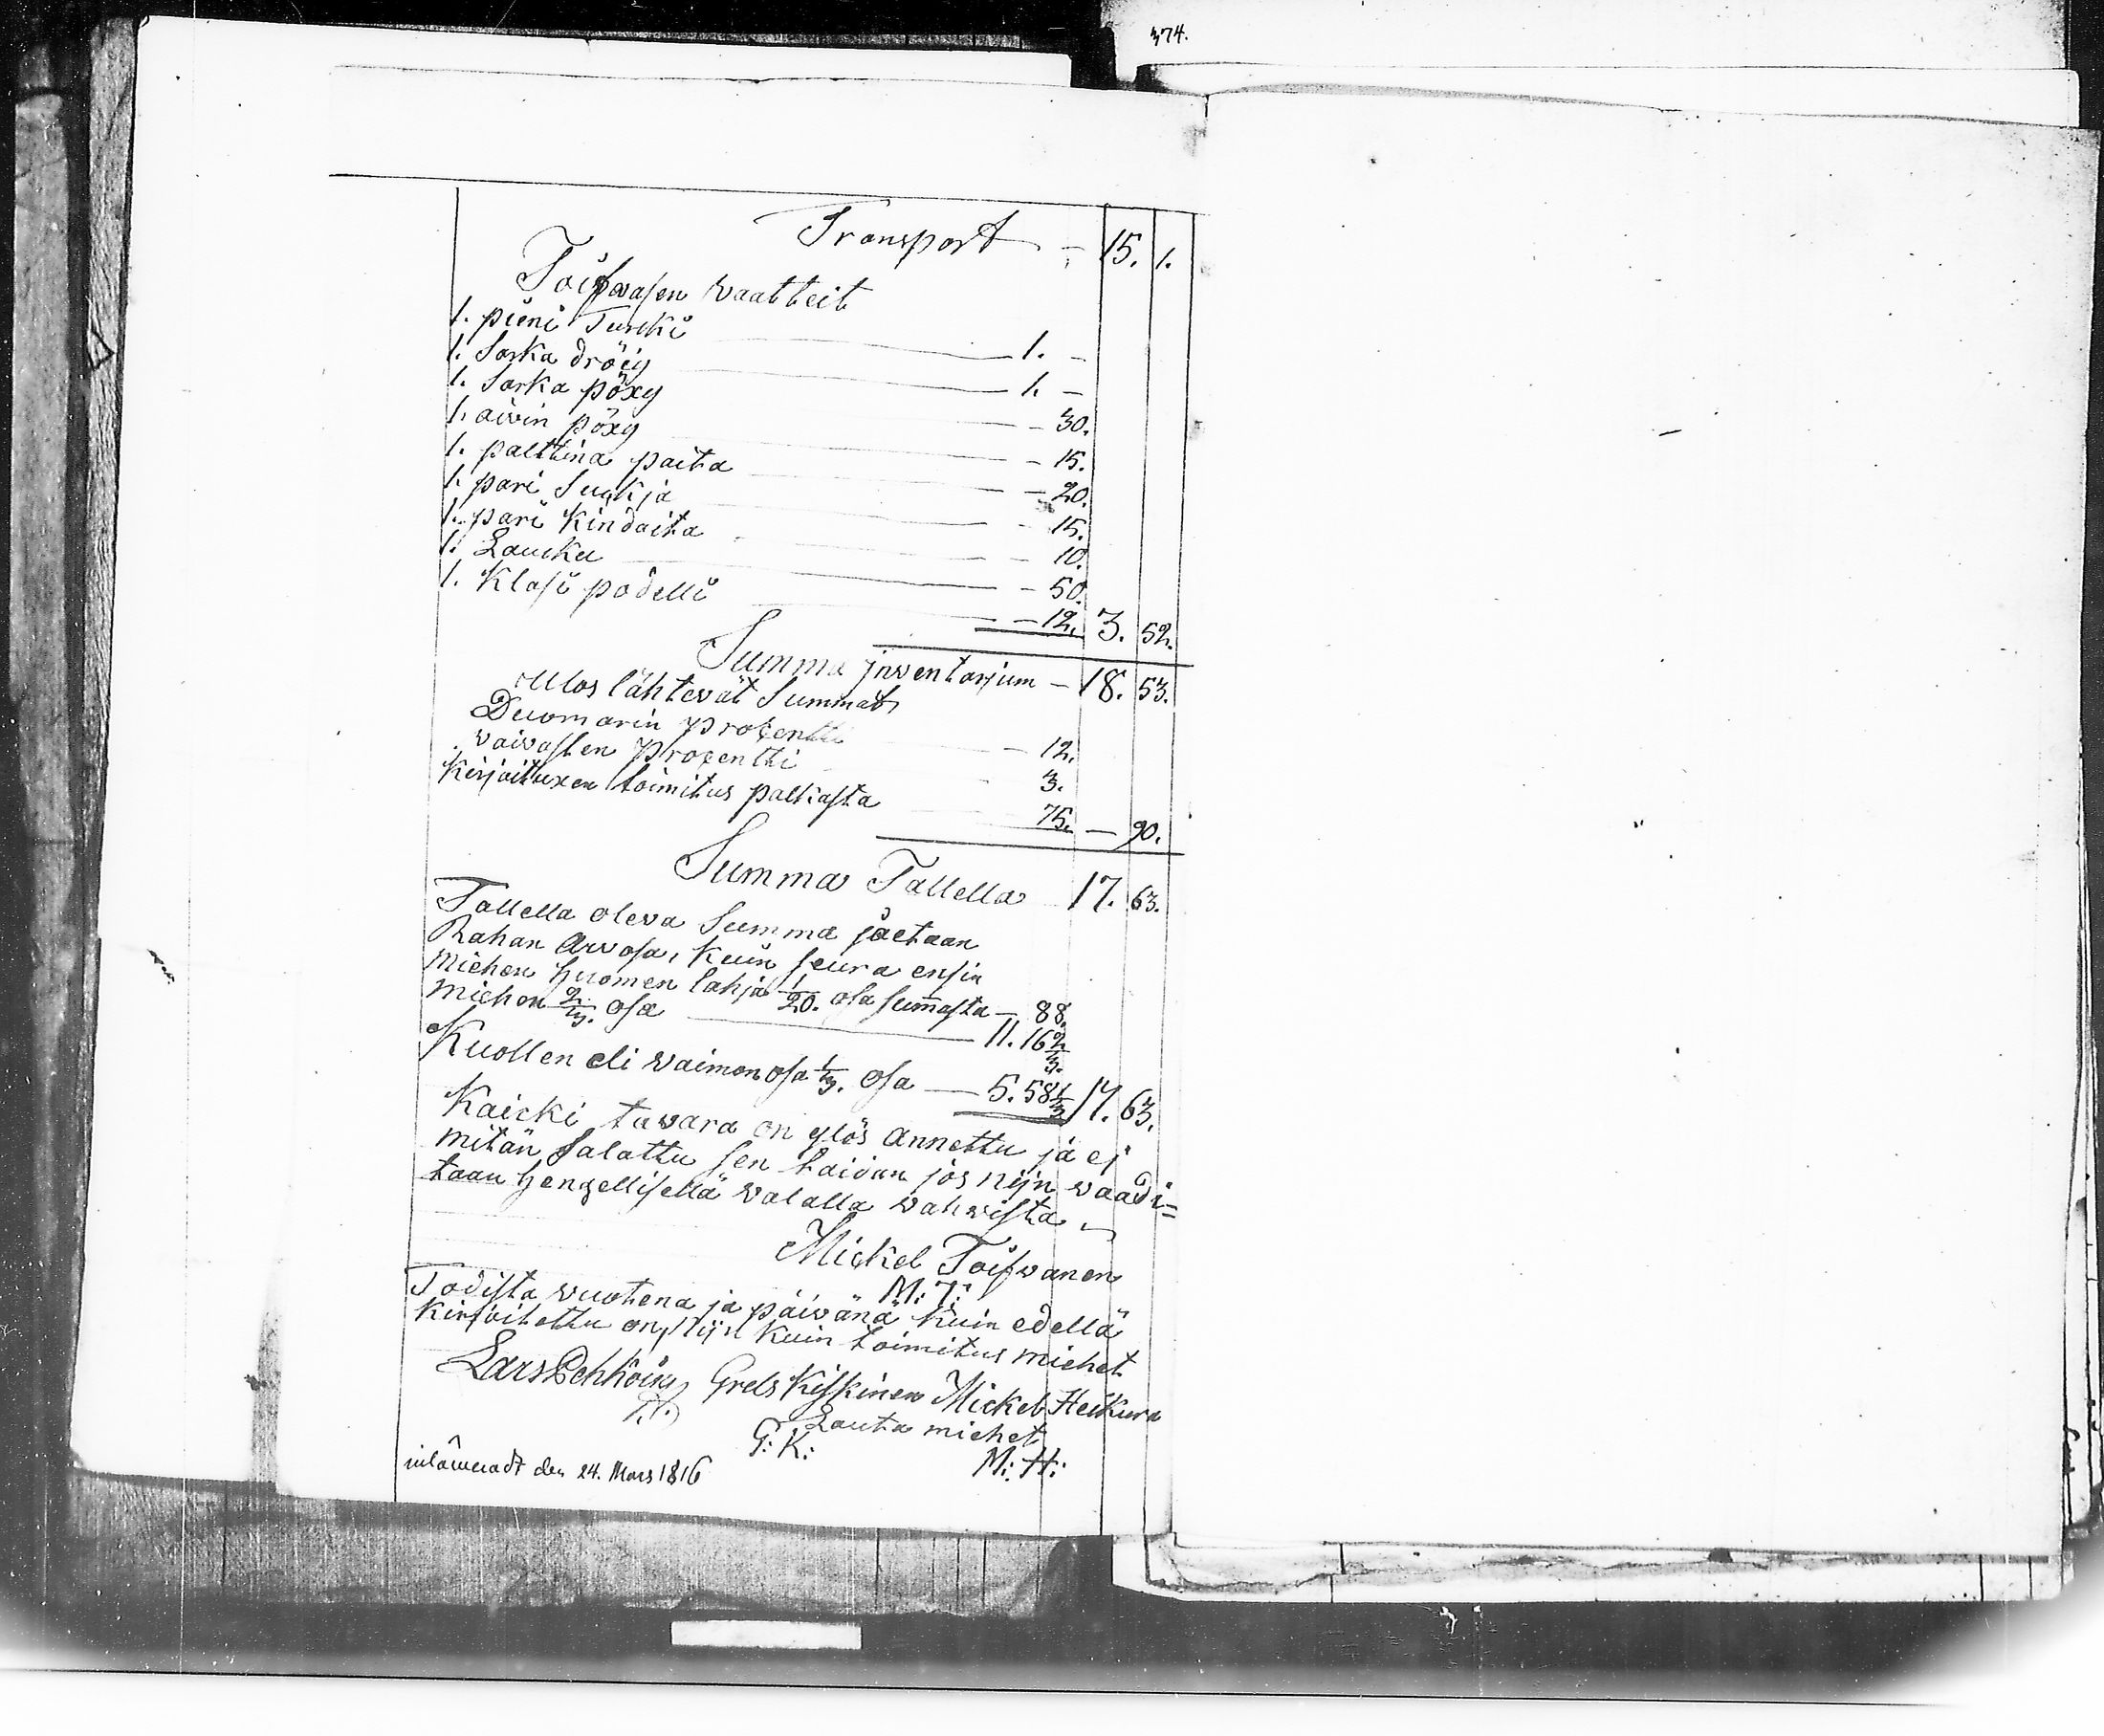 374.
Transport - 15. 1.
Toifwasen waatteit
1. pieni Turcki 1. -
1. Sarka dröijy 1. -
1. Sarka pöxy - 30.
1. aiwin pöxy - 15.
1. palttina paita - 20.
1. pari Suckja - 15.
1. pari Kindaita - 10.
1. Laucku - 50.
1. Klasi podelli - 12. 3. 52.
Summa jnventarjum - 18. 53.
Ulos lähtevät Summat
Duomarin prosentti - 12.
vaivasten prosentti 3.
Kirjoituxen toimitus palkasta 75. - 90.
Summa Tallella 17. 63.
Tallella oleva Summa jaetaan
Rahan Arvosa, Kuin seura ensin
Miehen huomen lahja 1/20. osa sum̄asta - 88.
miehen 2/3. osa 11. 16 2/3.
Kuollen eli vaimon osa 1/3. osa - 5. 58 1/3 17. 63.
Kaicki tavara on ylös annettu ja ej
mitän Salattu sen taidan jos nijn vaadi=
taan hengellisellä valalla vahvista
Mickel Toifwanen
M: T:
Todista vuotena ja päivänä kuin edellä
Kirjoitettu on, nijn kuin toimitus miehet
Lars Grels Kiskinen Mickel Heikura
Lauta miehet
G: K: M: H:
inlämnadt den 24. Mars 1816